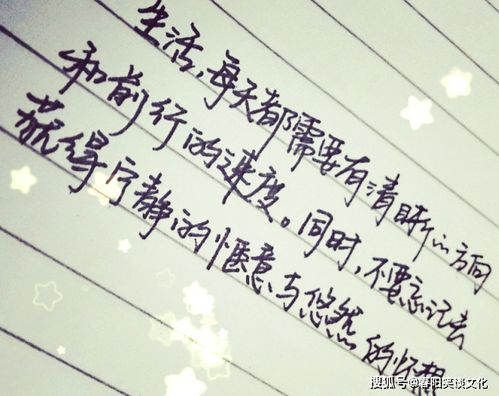 生活,每天都需要有清晰的方向
和前行的速度。同时,不要忘记去
获得宁静的惬意与悠然的怀想
搜狐号@春阳笑谈文化